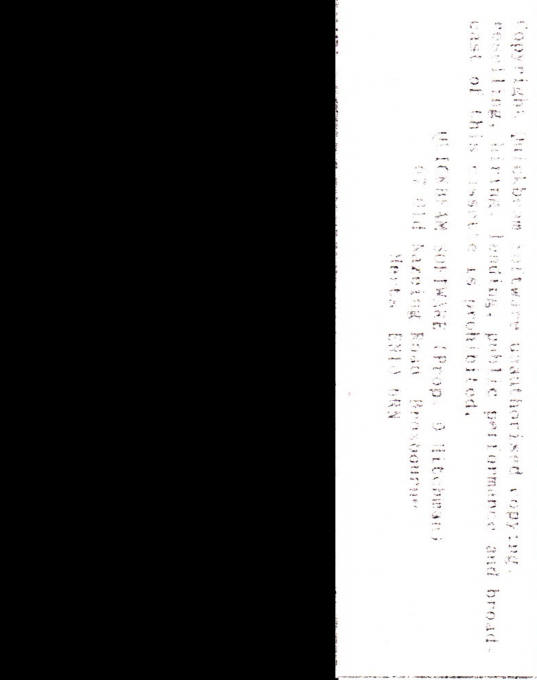 Copyright software unauthorised copying,
reselling, hiring, lending, public performance and broad-
cast of this cassette is prohibited.
SOFTWARE (Prop. Hitchman)
Old Nazeing Road Broxbourne
Herts EN10 6RN